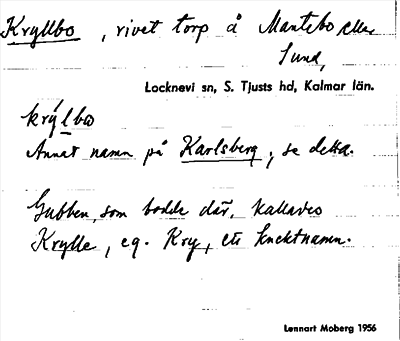 Kryllbo, rivet torp å Mantebo eller
Sund,
Locknevi sn, S. Tjusts hd, Kalmar län.
krýlbo
Annat namn på Karlsberg, se detta.
Gubben, som bodde där, kallades
Krylle, eg. Kry, ett knektnamn.
Lennart Moberg 1956